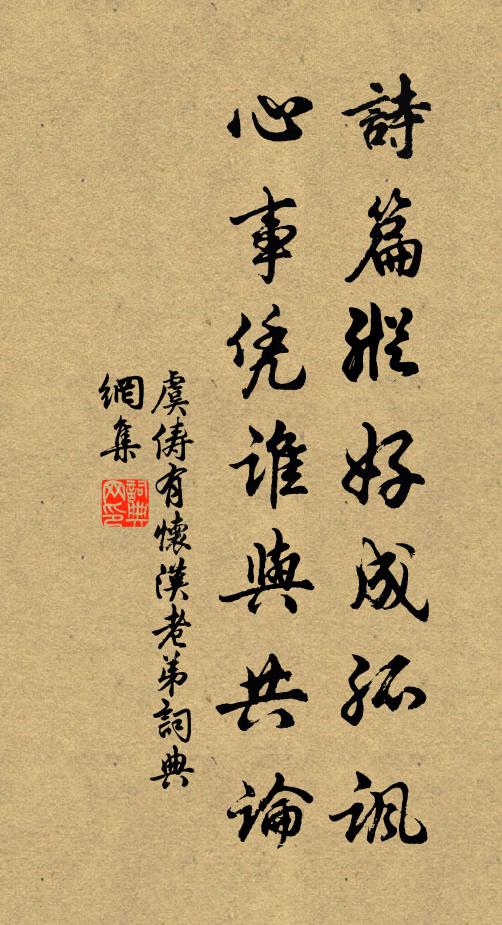 詩篇縱好成孤諷
心事凭誰與共論
虞儔有懷漢老弟詞典
網集
詞典網印